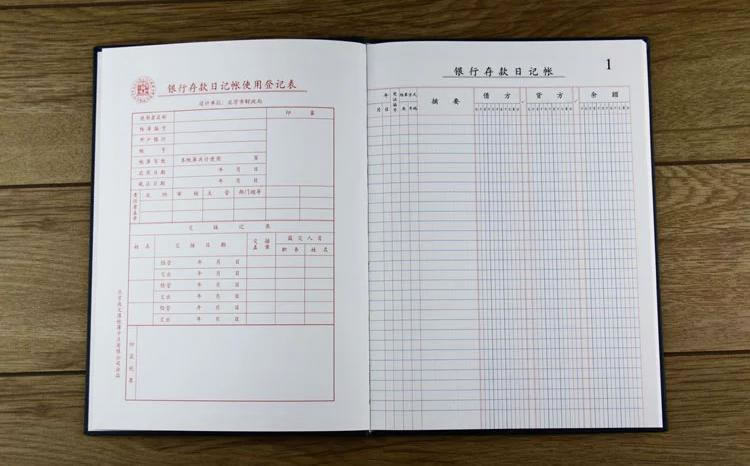 银行存款日记帐使用登记表
设计单位：北京市财政局
使用者名称
印 鉴
帐簿编号
开户银行
帐 号
帐簿页数 本帐簿共计使用 页
启用日期 年 月 日
截止日期 年 月 日
责任者盖章
审核 主管 部门领导
交 接 记 录
姓名 交接日期 交接盖章 监交人员
职务 姓名
经管 年 月 日
交出 年 月 日
经管 年 月 日
交出 年 月 日
经管 年 月 日
交出 年 月 日
印花税票
银行存款日记帐
1
年 凭证编号
月 日
摘 要
借 方
贷 方
余 额